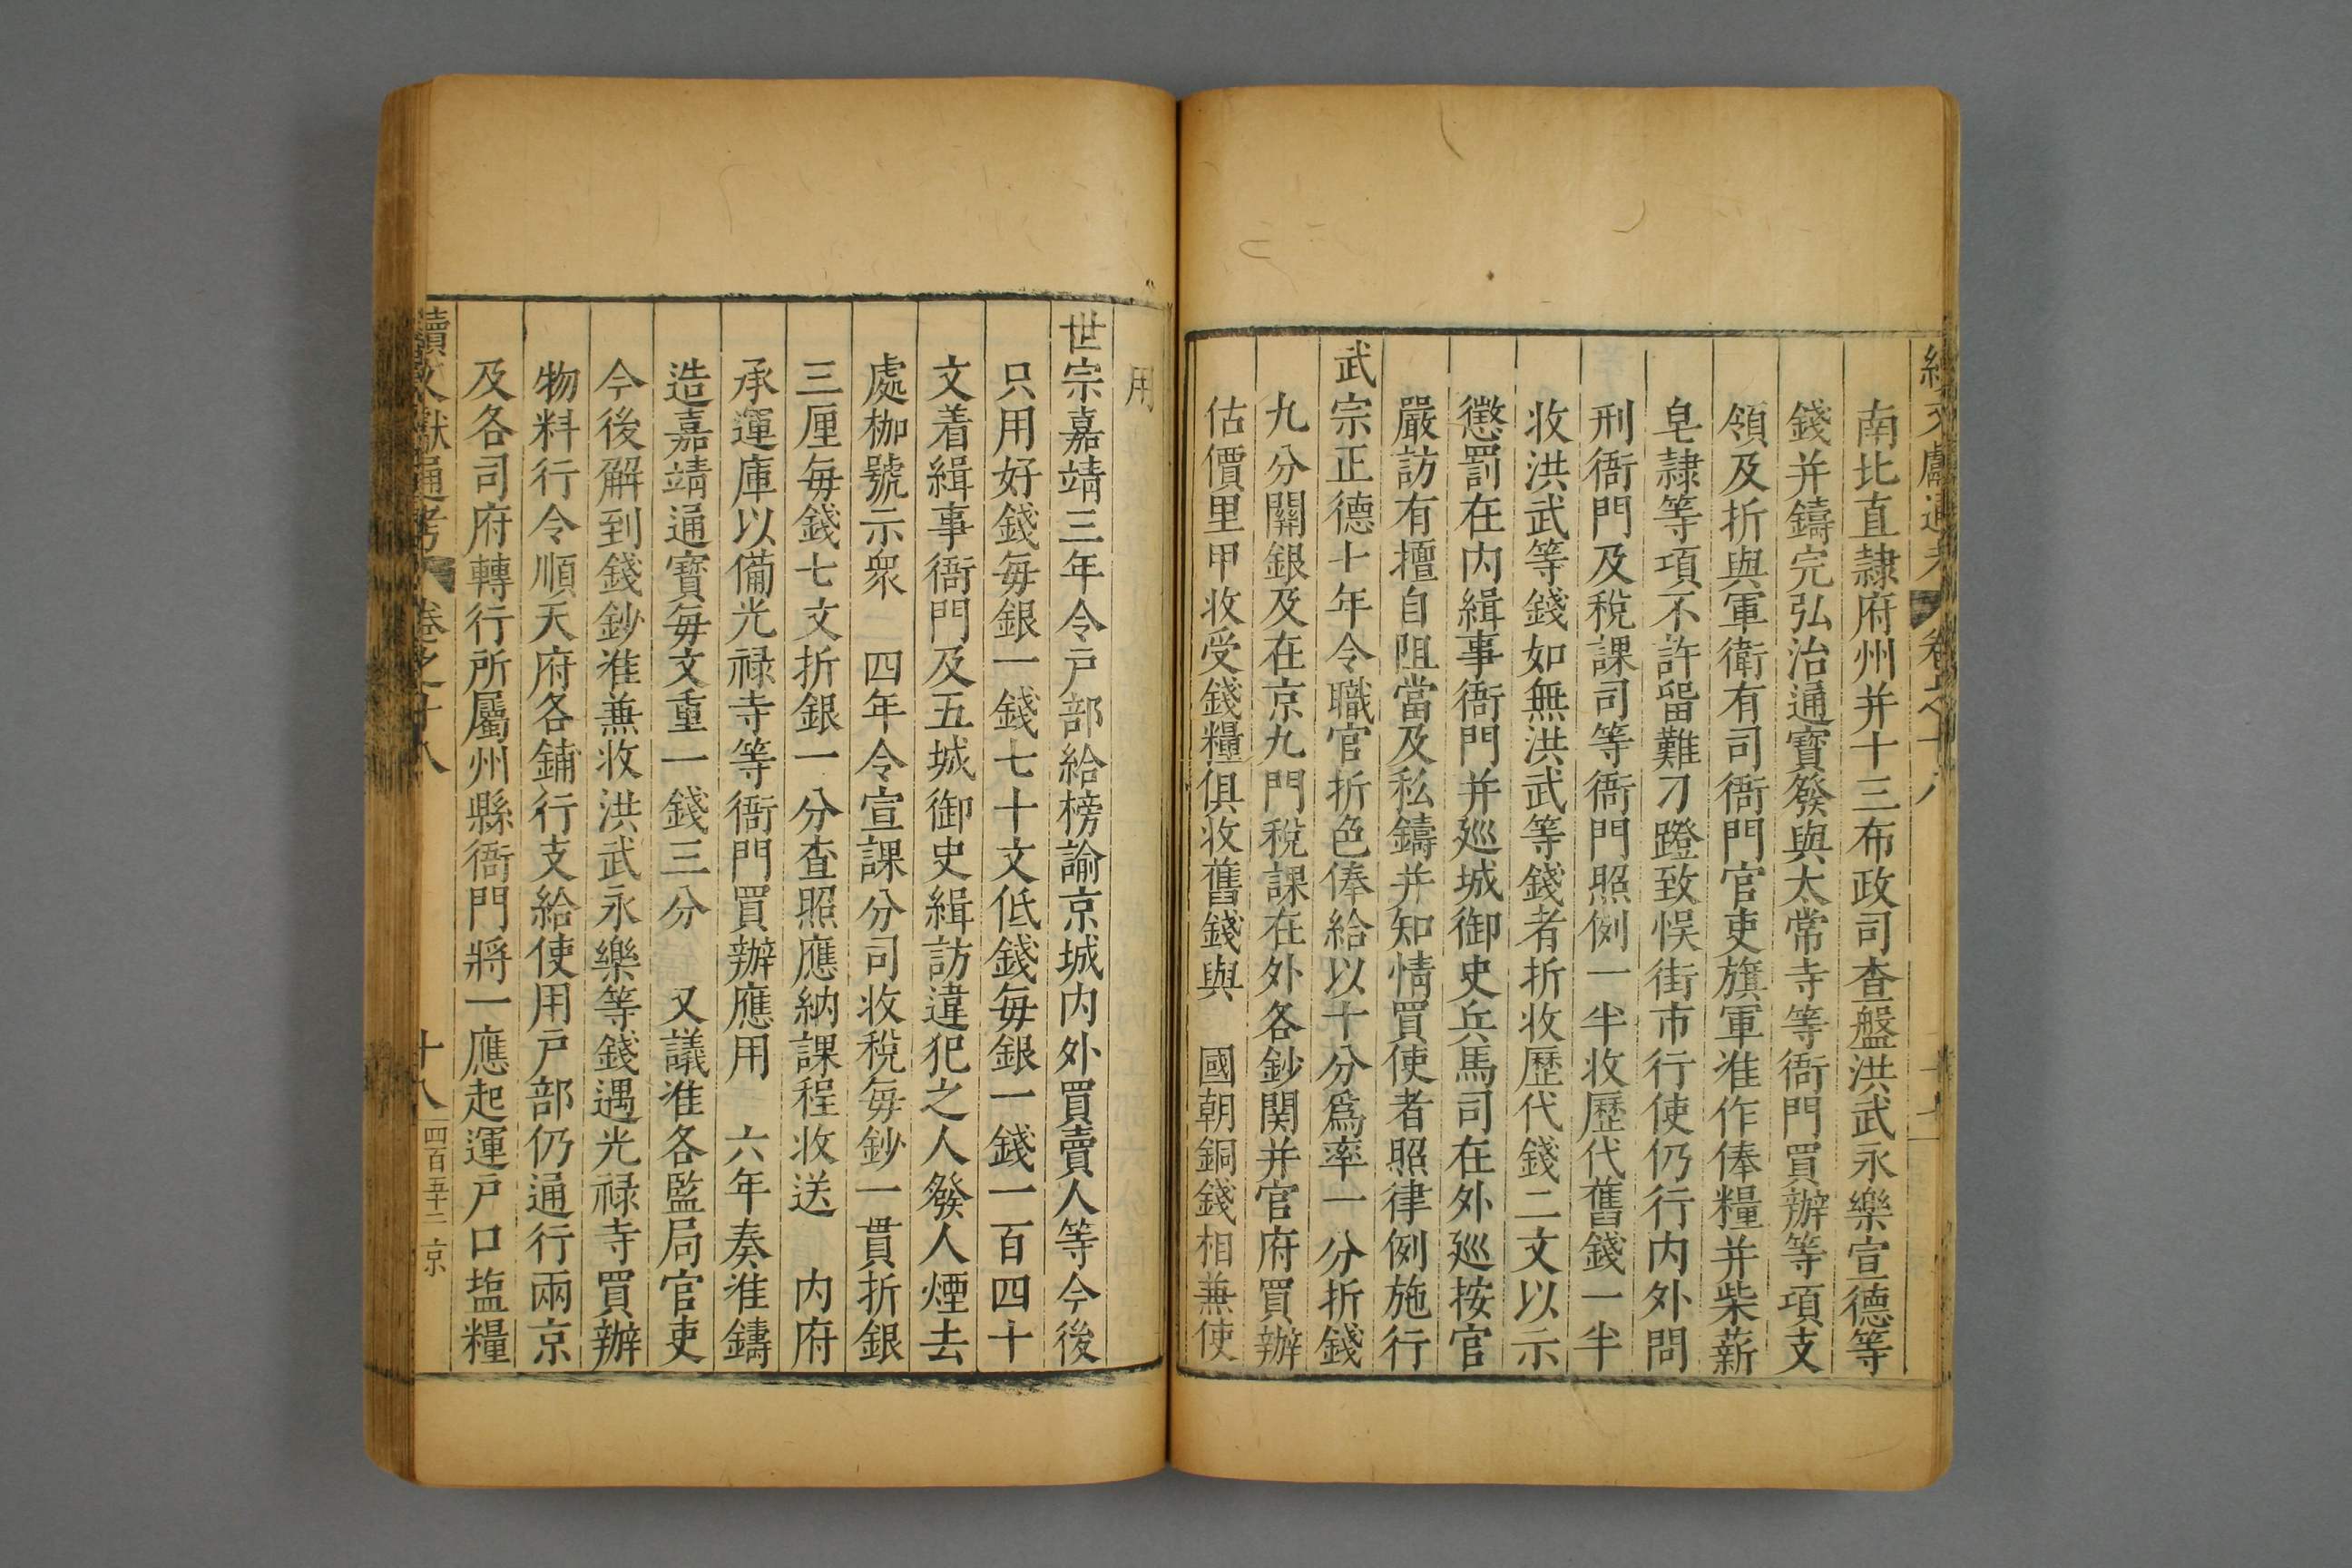 南北直隷府州并十三布政司查盤洪武永樂宣德等
錢并鑄完弘治通寳發與太常寺等衙門買辦等項支
領及折與軍衛有司衙門官吏旗軍准作俸糧并柴薪
皂隷等項不許留難刁蹬致悞街市行使仍行内外問
刑衙門及稅課司等衙門照例一半收歷代舊錢一半
收洪武等錢如無洪武等錢者折收歷代錢二文以示
懲罰在内緝事衙門并廵城御史兵馬司在外廵按官
嚴訪有擅自阻當及私鑄并知情買使者照律例施行
武宗正德十年令職官折色俸給以十分爲率一分折錢
九分關銀及在京九門稅課在外各鈔関并官府買辦
估價里甲收受錢糧俱收舊錢與　國朝銅錢相兼使
用
世宗嘉靖三年令戸部給榜諭京城内外買賣人等今後
只用好錢每銀一錢七十文低錢每銀一錢一百四十
文着緝事衙門及五城御史緝訪違犯之人發人煙去
處枷號示衆　四年令宣課分司收稅每鈔一貫折銀
三厘每錢七文折銀一分查照應納課程收送　内府
承運庫以備光禄寺等衙門買辦應用　六年奏准鑄
造嘉靖通寳每文重一錢三分　又議准各監局官吏
今後解到錢鈔准兼收洪武永樂等錢遇光禄寺買辦
物料行令順天府各鋪行支給使用戸部仍通行兩京
及各司府轉行所屬州縣衙門將一應起運戸口塩糧
續文獻通考　卷之十八　十八　四百五十二　京